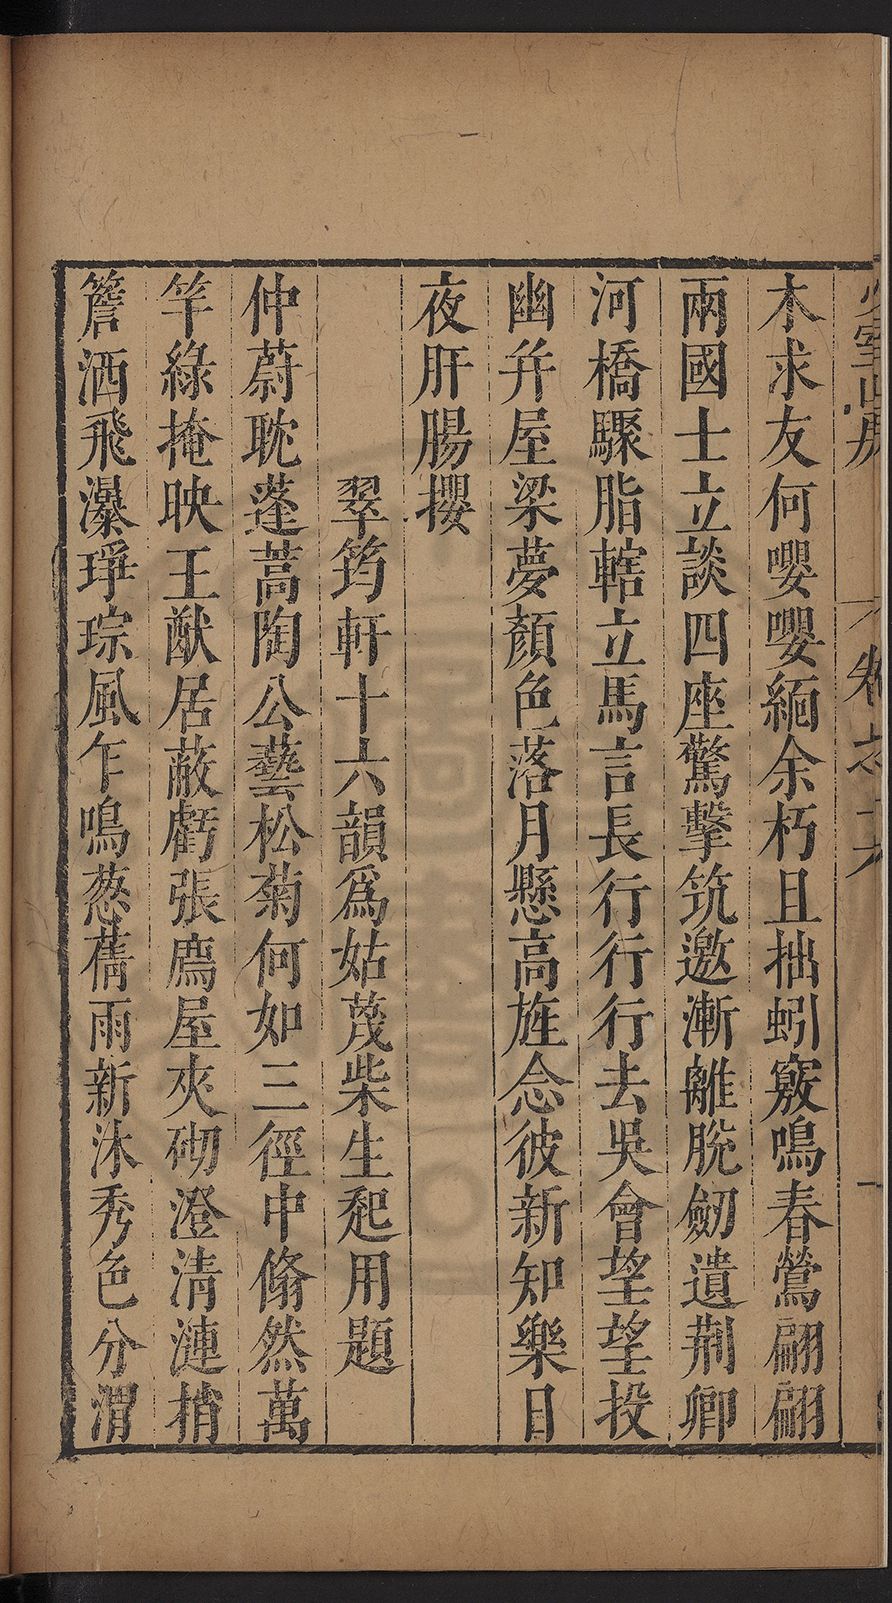 木求友何嚶嚶緬余朽且拙蚓竅鳴春鶯翩翩
兩國士立談四座驚擊筑邀漸離脫劒遺荆卿
河橋驟脂轄立馬言長行行行去吳會望望投
幽并屋梁夢顏色落月懸高旌念彼新知樂日
夜肝腸攖
翠筠軒十六韻爲姑蔑柴生起用題
仲蔚耽蓬蒿陶公藝松菊何如三徑中翛然萬
竿綠掩映王猷居蔽虧張廌屋夾砌澄清漣梢
簷洒飛瀑琤琮風乍鳴葱蒨雨新沐秀色分渭